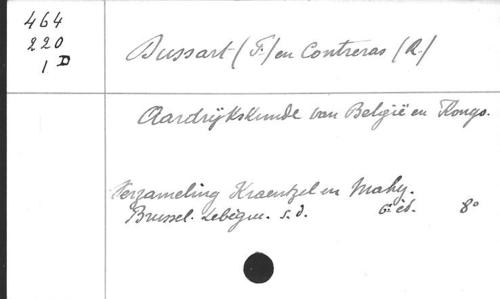 464
220
1 D
Dussart (F.) en Contreras (R.)
Aardrijkskunde van België en Kongo.
Verzameling Kraentzel en Mahy.
Brussel. Lebègue. s. d. 6e éd. 8°